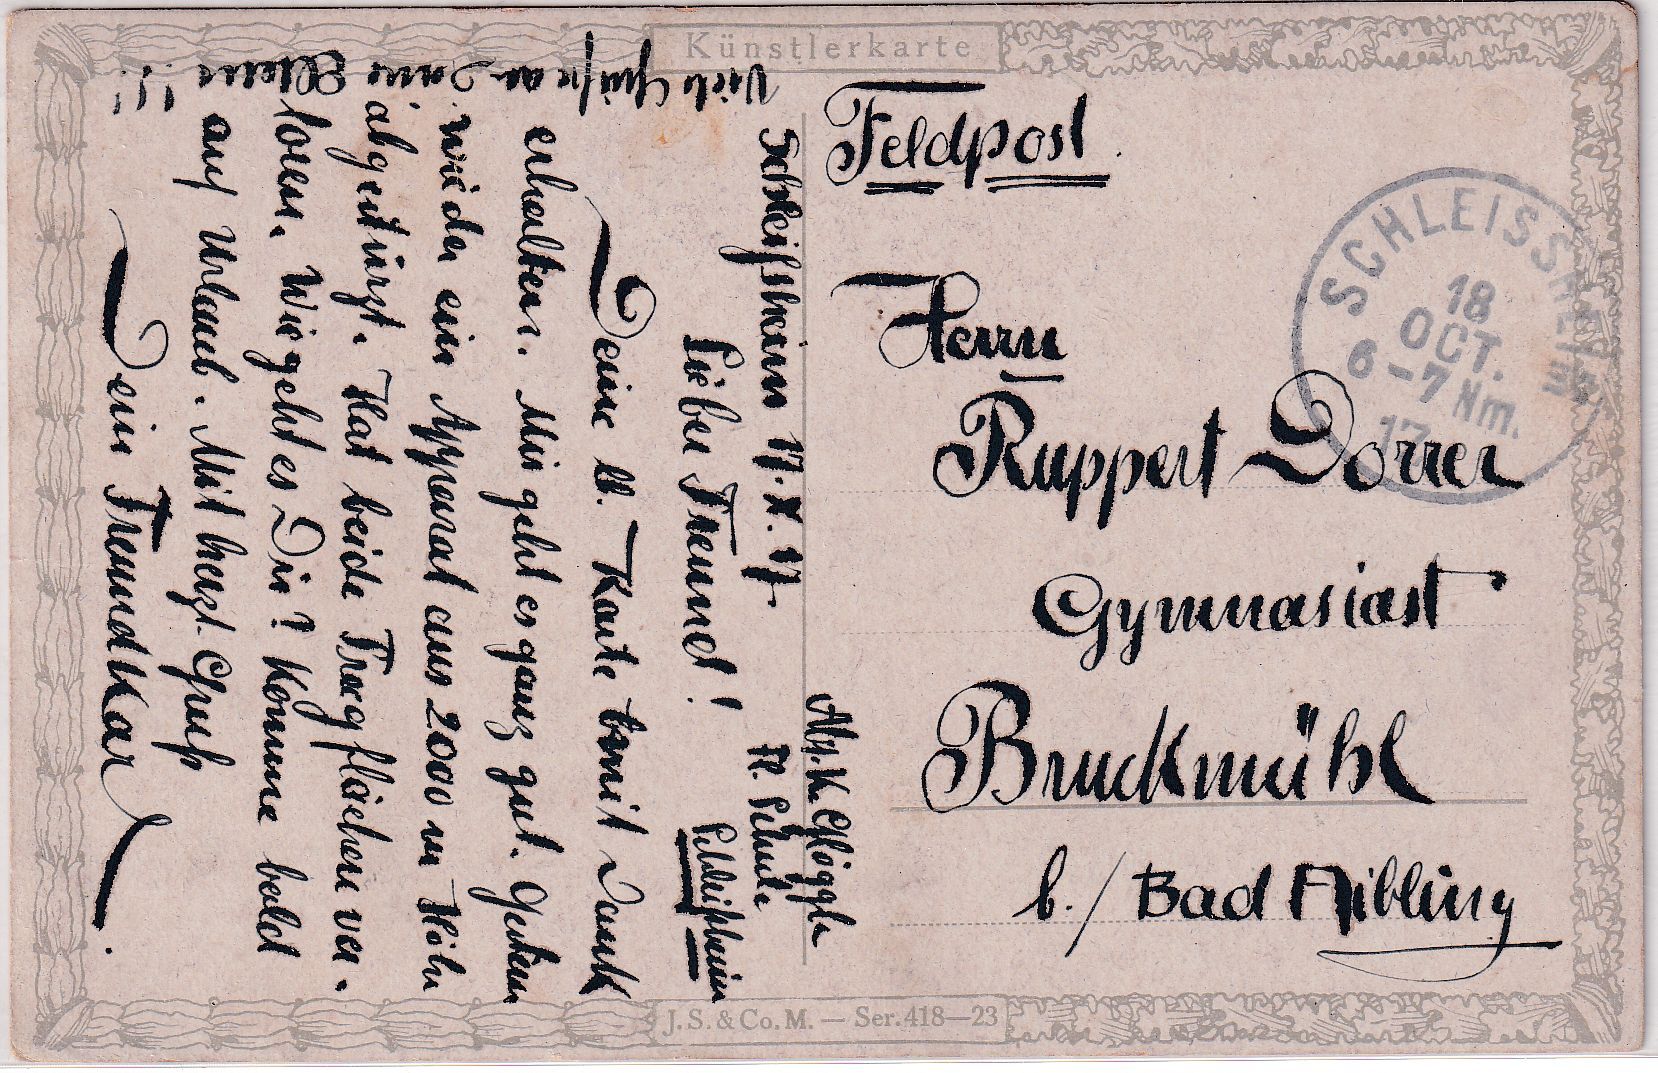 Künstlerkarte
Feldpost.
SCHLEISSHEIM
18
OCT.
6-7 Nm.
17
Herrn
Ruppert Dorrer
Gymnasiast
Bruckmühl
b./ Bad Aibling
Abs. K. Glöggle
Fl. Schule
Schleißheim
Schleißheim 17.X.17
Lieber Freund!
Deine lb. Karte mit Dank
erhalten. Mir geht es ganz gut. Gestern
wieder ein Apparat aus 2000 m Höhe
abgestürzt. Hat beide Tragflächen ver-
loren. Wie geht es Dir? Komme bald
auf Urlaub. Mit herzl. Gruß
Dein Freund Kar
Viele Grüße an Deine Eltern !!
J.S.&Co.M. — Ser. 418—23